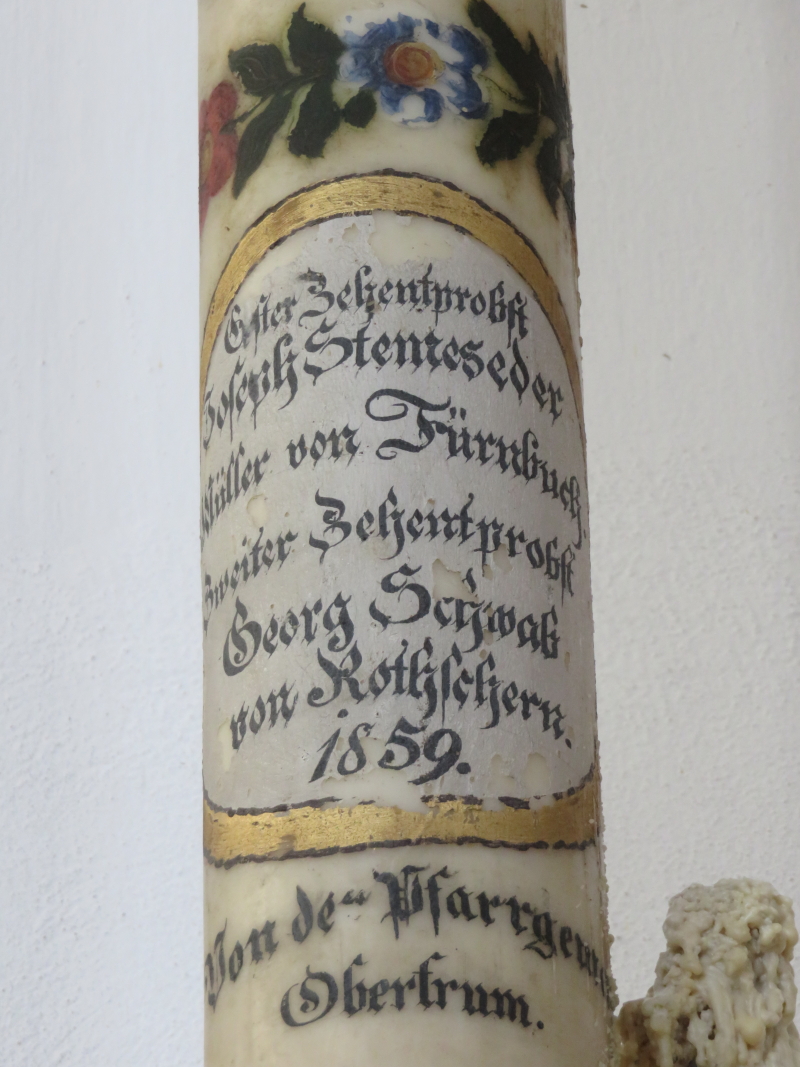 Erster Zehentprobst
Joseph Stemeseder
Müller von Fürnbuch.
Zweiter Zehentprobst
Georg Schwab
von Rothschern.
1859.
Von der Pfarrgem
Obertrum.